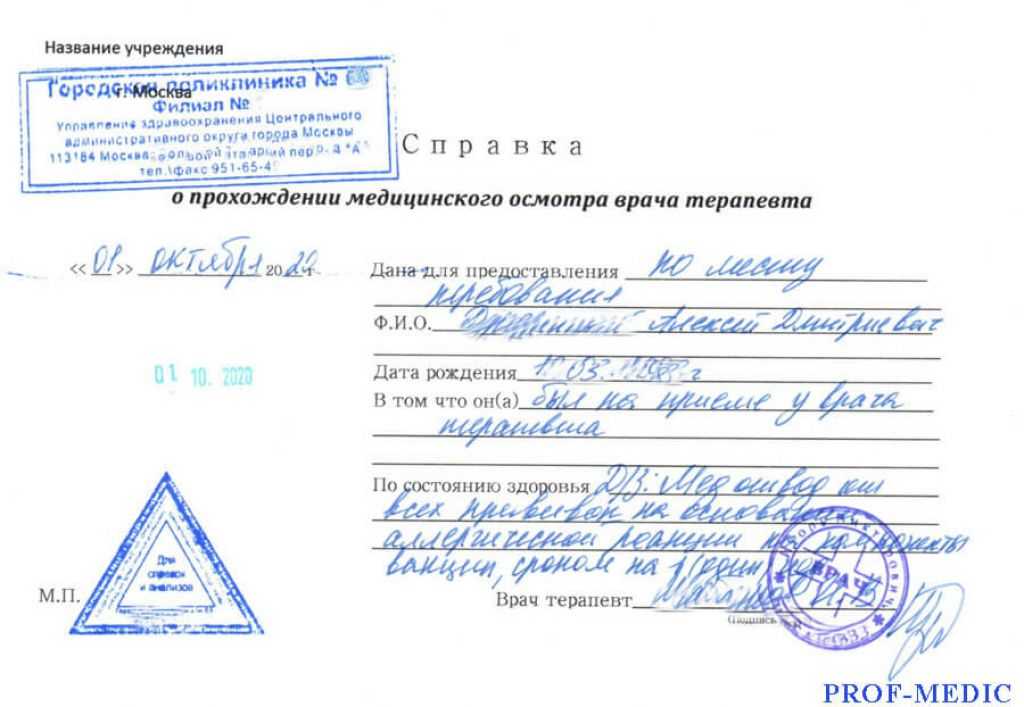 Название учреждения
г. Москва
Городская поликлиника №
Филиал №
Управление здравоохранения Центрального
административного округа города Москвы
113184 Москва, пер.
тел.\факс 951-65-4
Справка
о прохождении медицинского осмотра врача терапевта
«01» октября 2020 г
Дана для предоставления по месту
пребования
Ф.И.О. Алексей Дмитриевич
01 10. 2020
Дата рождения
В том что он(а) был на приеме у врача
терапевта
По состоянию здоровья Д/З: Мед отвод от
всех прививок на основании
аллергической реакции на компоненты
вакцин, сроком на 1 (один)
Для
справок
и анализов
ВРАЧ
М.П.
Врач терапевт
(Подпись
PROF-MEDIC